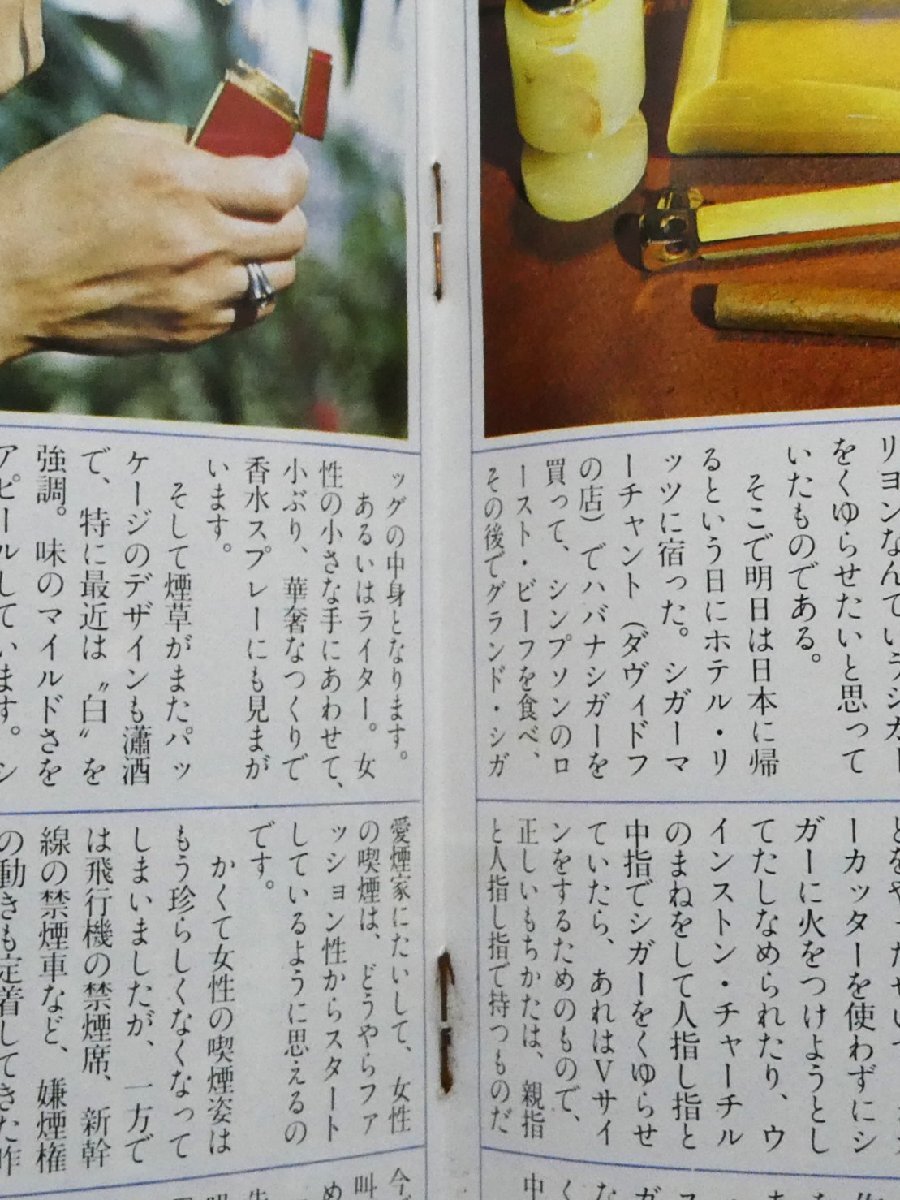 リヨンなんていうシガー
をくゆらせたいと思って
いたものである。
そこで明日は日本に帰
るという日にホテル・リ
ッツに宿った。シガーマ
ーチャント（ダヴィドフ
の店）でハバナシガーを
買って、シンプソンのロ
ースト・ビーフを食べ、
その後でグランド・シガ
ーカッターを使わずにシ
ガーに火をつけようとし
てたしなめられたり、ウ
インストン・チャーチル
のまねをして人指し指と
中指でシガーをくゆらせ
ていたら、あれはVサイ
ンをするためのもので、
正しいもちかたは、親指
と人指し指で持つものだ
ッグの中身となります。
あるいはライター。女
性の小さな手にあわせて、
小ぶり、華奢なつくりで
香水スプレーにも見まが
います。
そして煙草がまたパッ
ケージのデザインも瀟洒
で、特に最近は〝白〟を
強調。味のマイルドさを
アピールしています。シ
愛煙家にたいして、女性
の喫煙は、どうやらファ
ッション性からスタート
しているように思えるの
です。
かくて女性の喫煙姿は
もう珍らしくなくなって
しまいましたが、一方で
は飛行機の禁煙席、新幹
線の禁煙車など、嫌煙権
の動きも定着してきた昨